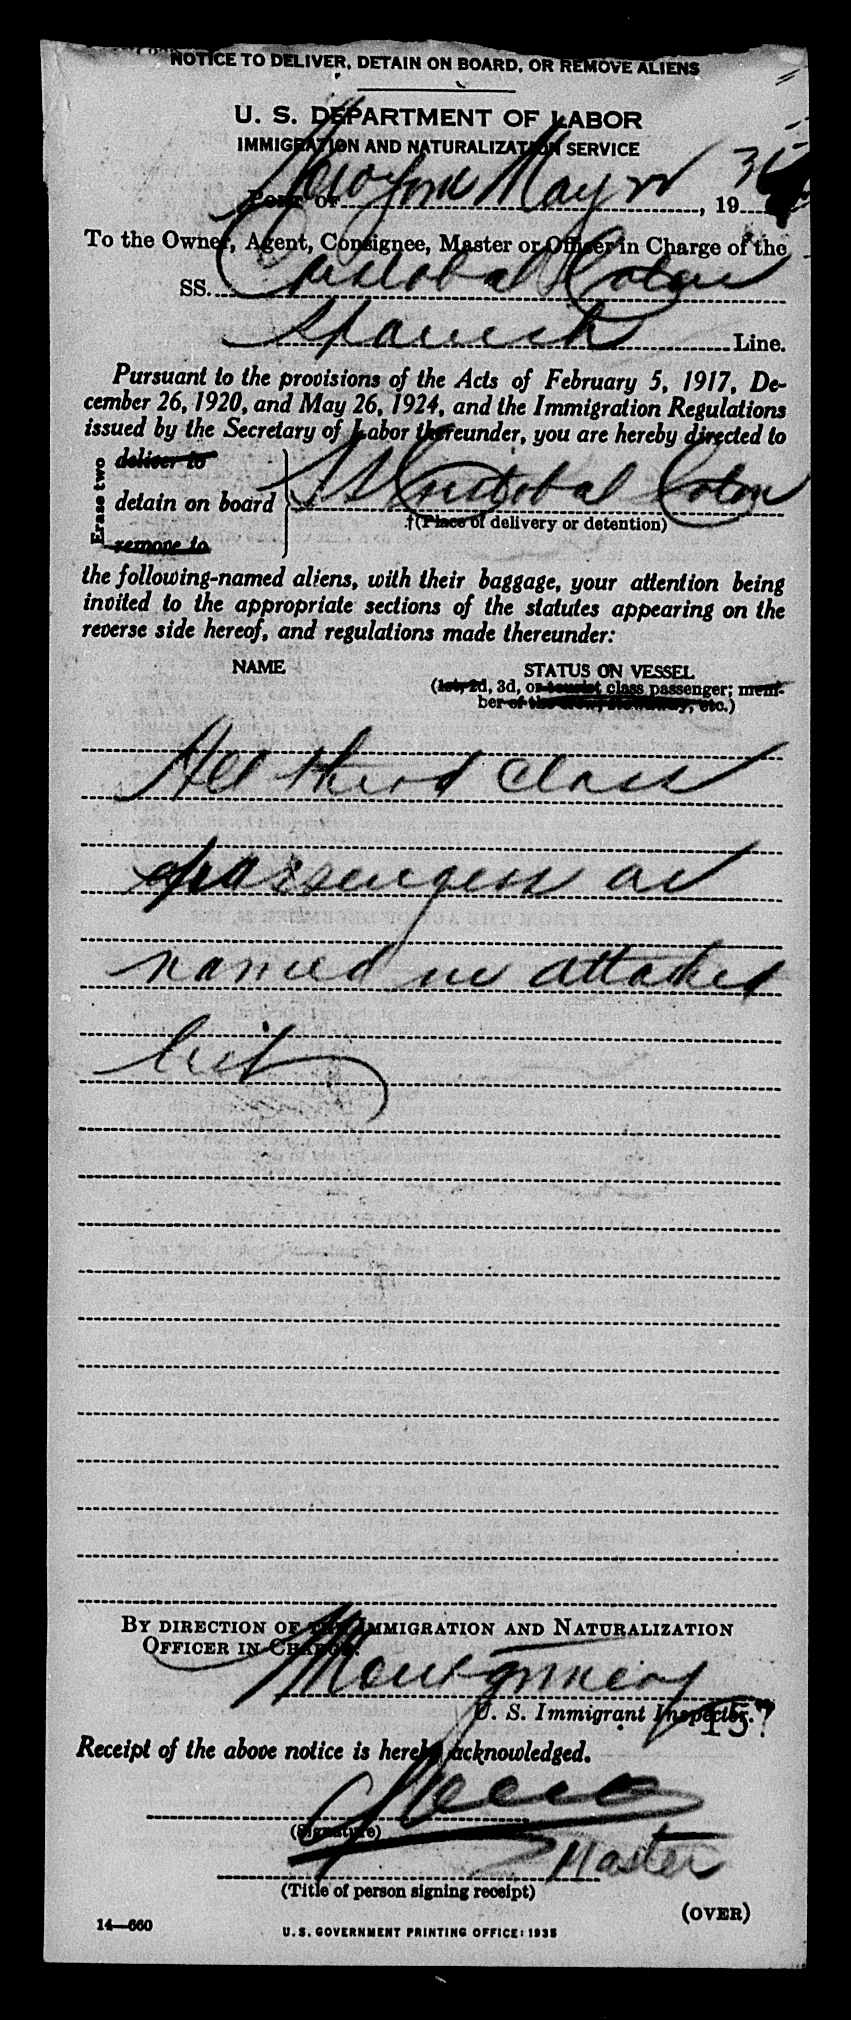 NOTICE TO DELIVER, DETAIN ON BOARD, OR REMOVE ALIENS
U. S. DEPARTMENT OF LABOR
IMMIGRATION AND NATURALIZATION SERVICE
Port of New York May 22, 19 36
To the Owner, Agent, Consignee, Master or Officer in Charge of the
SS. Cristobal Colon
Spanish Line.
Pursuant to the provisions of the Acts of February 5, 1917, De-
cember 26, 1920, and May 26, 1924, and the Immigration Regulations
issued by the Secretary of Labor thereunder, you are hereby directed to
Erase two
deliver to
detain on board SS Cristobal Colon
†(Place of delivery or detention)
remove to
the following-named aliens, with their baggage, your attention being
invited to the appropriate sections of the statutes appearing on the
reverse side hereof, and regulations made thereunder:
NAME STATUS ON VESSEL
(1st, 2d, 3d, or tourist class passenger; mem-
ber of the crew, stowaway, etc.)
All third class
passengers as
named in attached
list
BY DIRECTION OF THE IMMIGRATION AND NATURALIZATION
OFFICER IN CHARGE.
Montgomery
U. S. Immigrant Inspector.
157
Receipt of the above notice is hereby acknowledged.
(Signature)
Master
(Title of person signing receipt)
(OVER)
14—660
U. S. GOVERNMENT PRINTING OFFICE: 1935